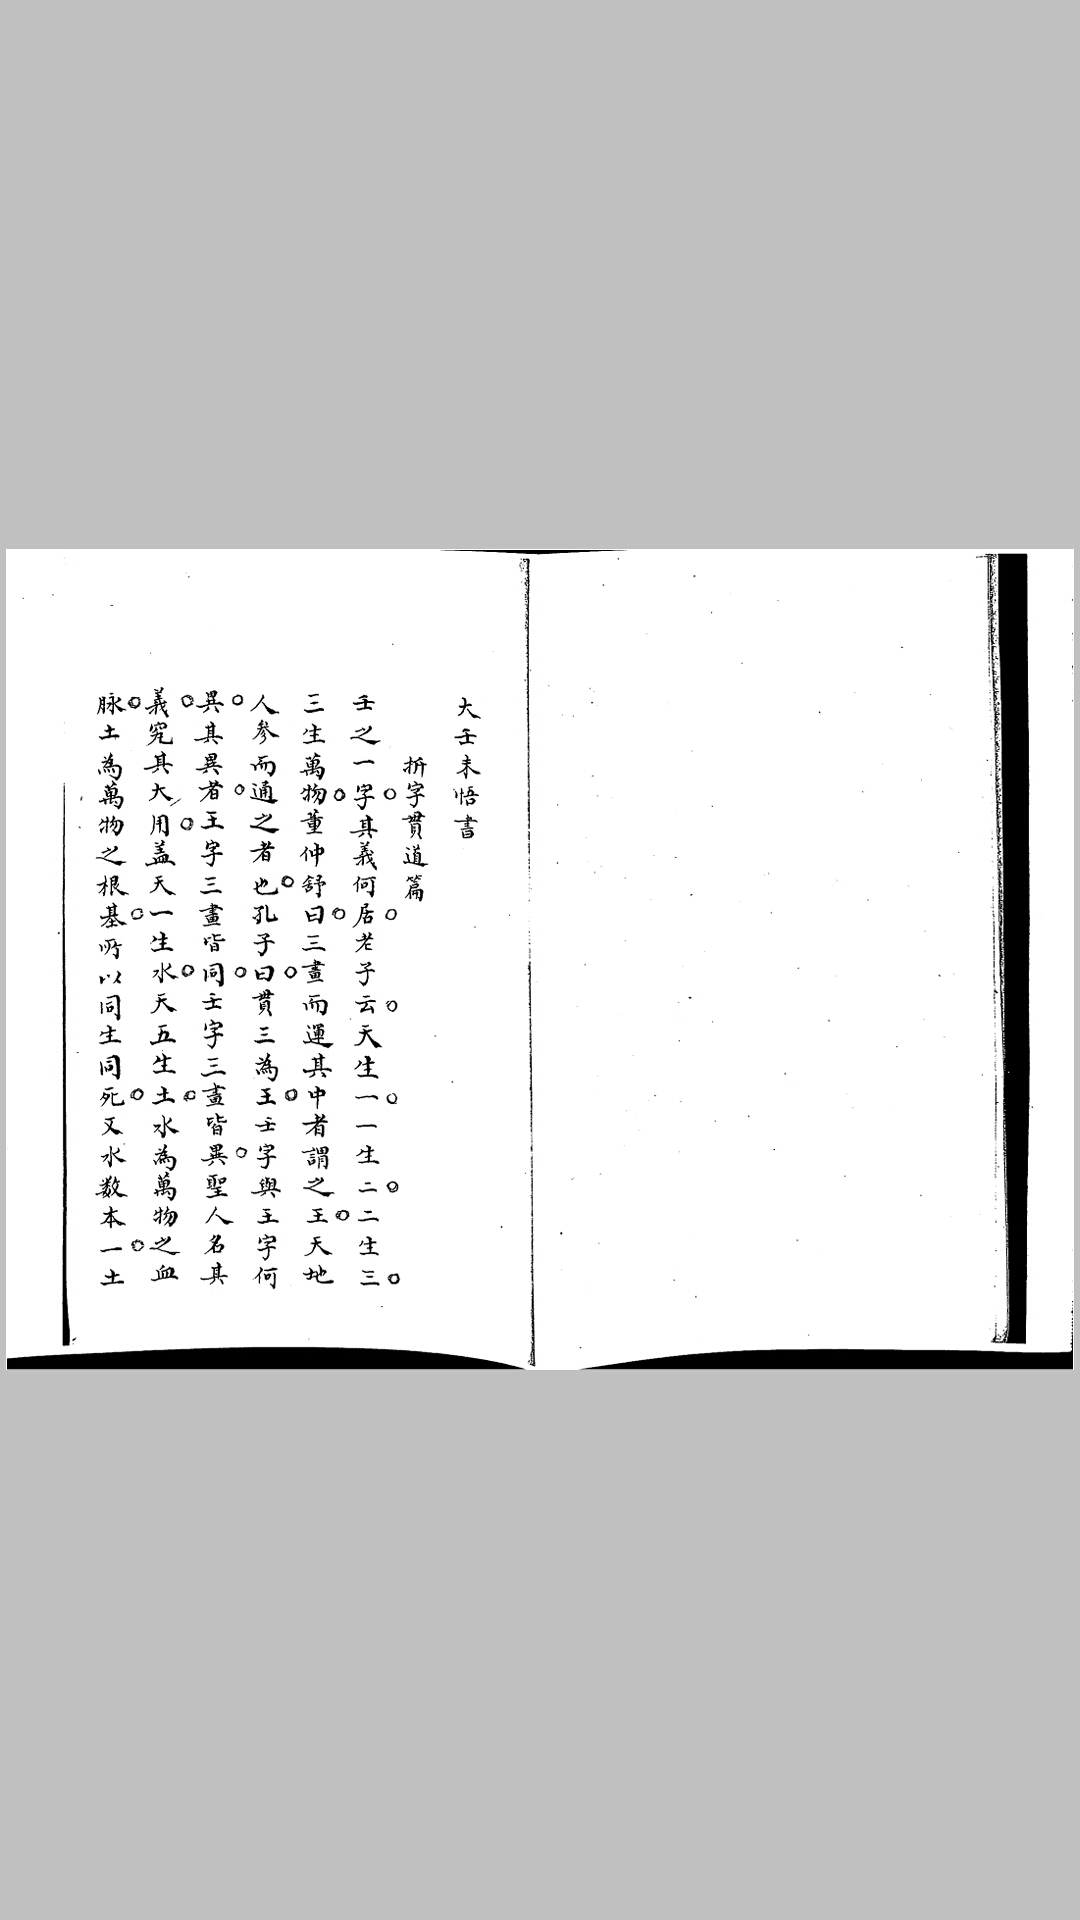 大壬未悟書
折字貫道篇
壬之一字其義何居老子云天生一一生二二生三
三生萬物董仲舒曰三畫而運其中者謂之王天地
人參而通之者也孔子曰貫三為王壬字與王字何
異其異者王字三畫皆同壬字三畫皆異聖人名其
義究其大用盖天一生水天五生土水為萬物之血
脉土為萬物之根基所以同生同死又水数本一土